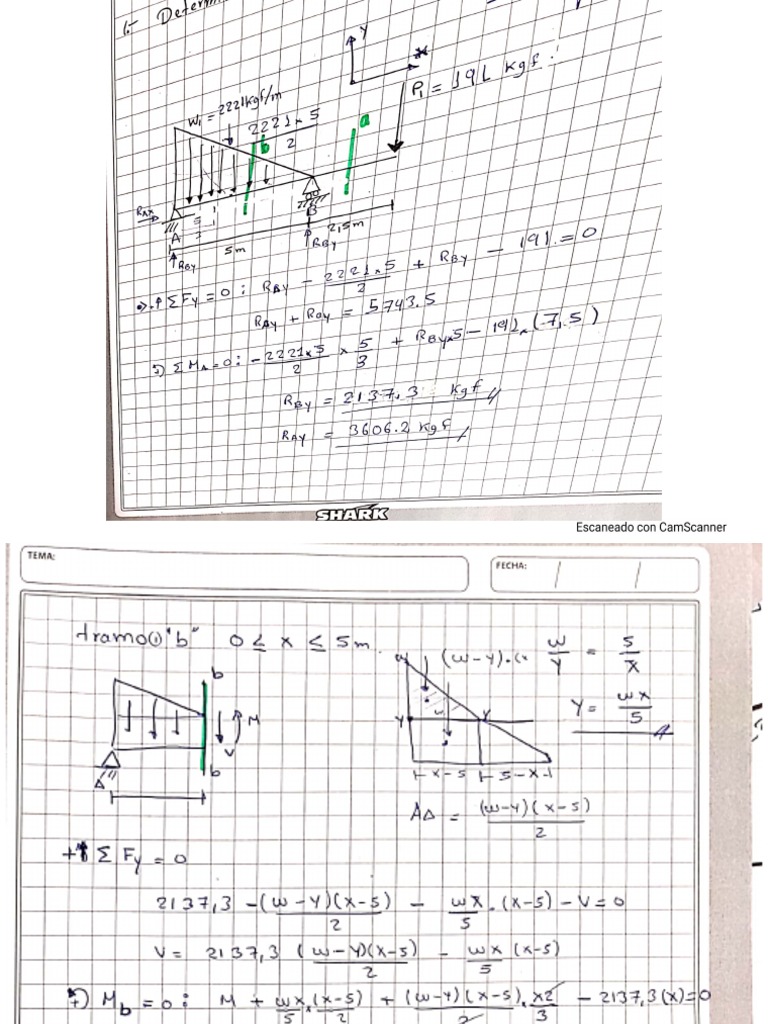 1.- Determin
Y
X
P₁ = 191 kgf
W₁ = 2221kgf/m
2221 x 5
2
a
b
RAX
5
3
A
B
RBY
RBY
5m
2,5m
ΣFy = 0 : RAY - 2221x5/2 + RBY - 191 = 0
RAY + RBY = 5743.5
ΣMA = 0 : -2221x5/2 x 5/3 + RBY x5 - 191 x (7,5)
RBY = 2137,3 Kgf
RAY = 3606.2 Kgf
SHARK
Escaneado con CamScanner
TEMA:
FECHA: / /
tramo① "b" 0 ≤ x ≤ 5m.
b
M
V
b
A
(w-y).(x
w/y = 5/x
y = wx/5
Y
Y
x-5
5-x
A△ = (w-y)(x-5)/2
+↑ Σ Fy = 0
2137,3 - (w-y)(x-5)/2 - wx/5 . (x-5) - V = 0
V = 2137,3 (w-y)(x-5)/2 - wx/5 (x-5)
+) Mb = 0 : M + wx/5 x (x-5)/2 + (w-y)(x-5)/2 . x2/3 - 2137,3(x)=0